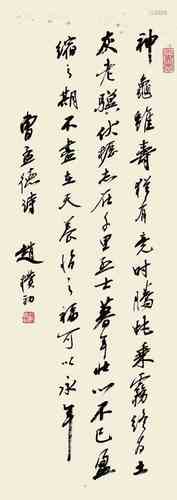 神龜雖壽猶有竟時騰蛇乘霧終为土
灰老驥伏櫪志在千里烈士暮年壯心不已盈
縮之期不盡在天養怡之福可以永年
曹孟德詩 趙樸初